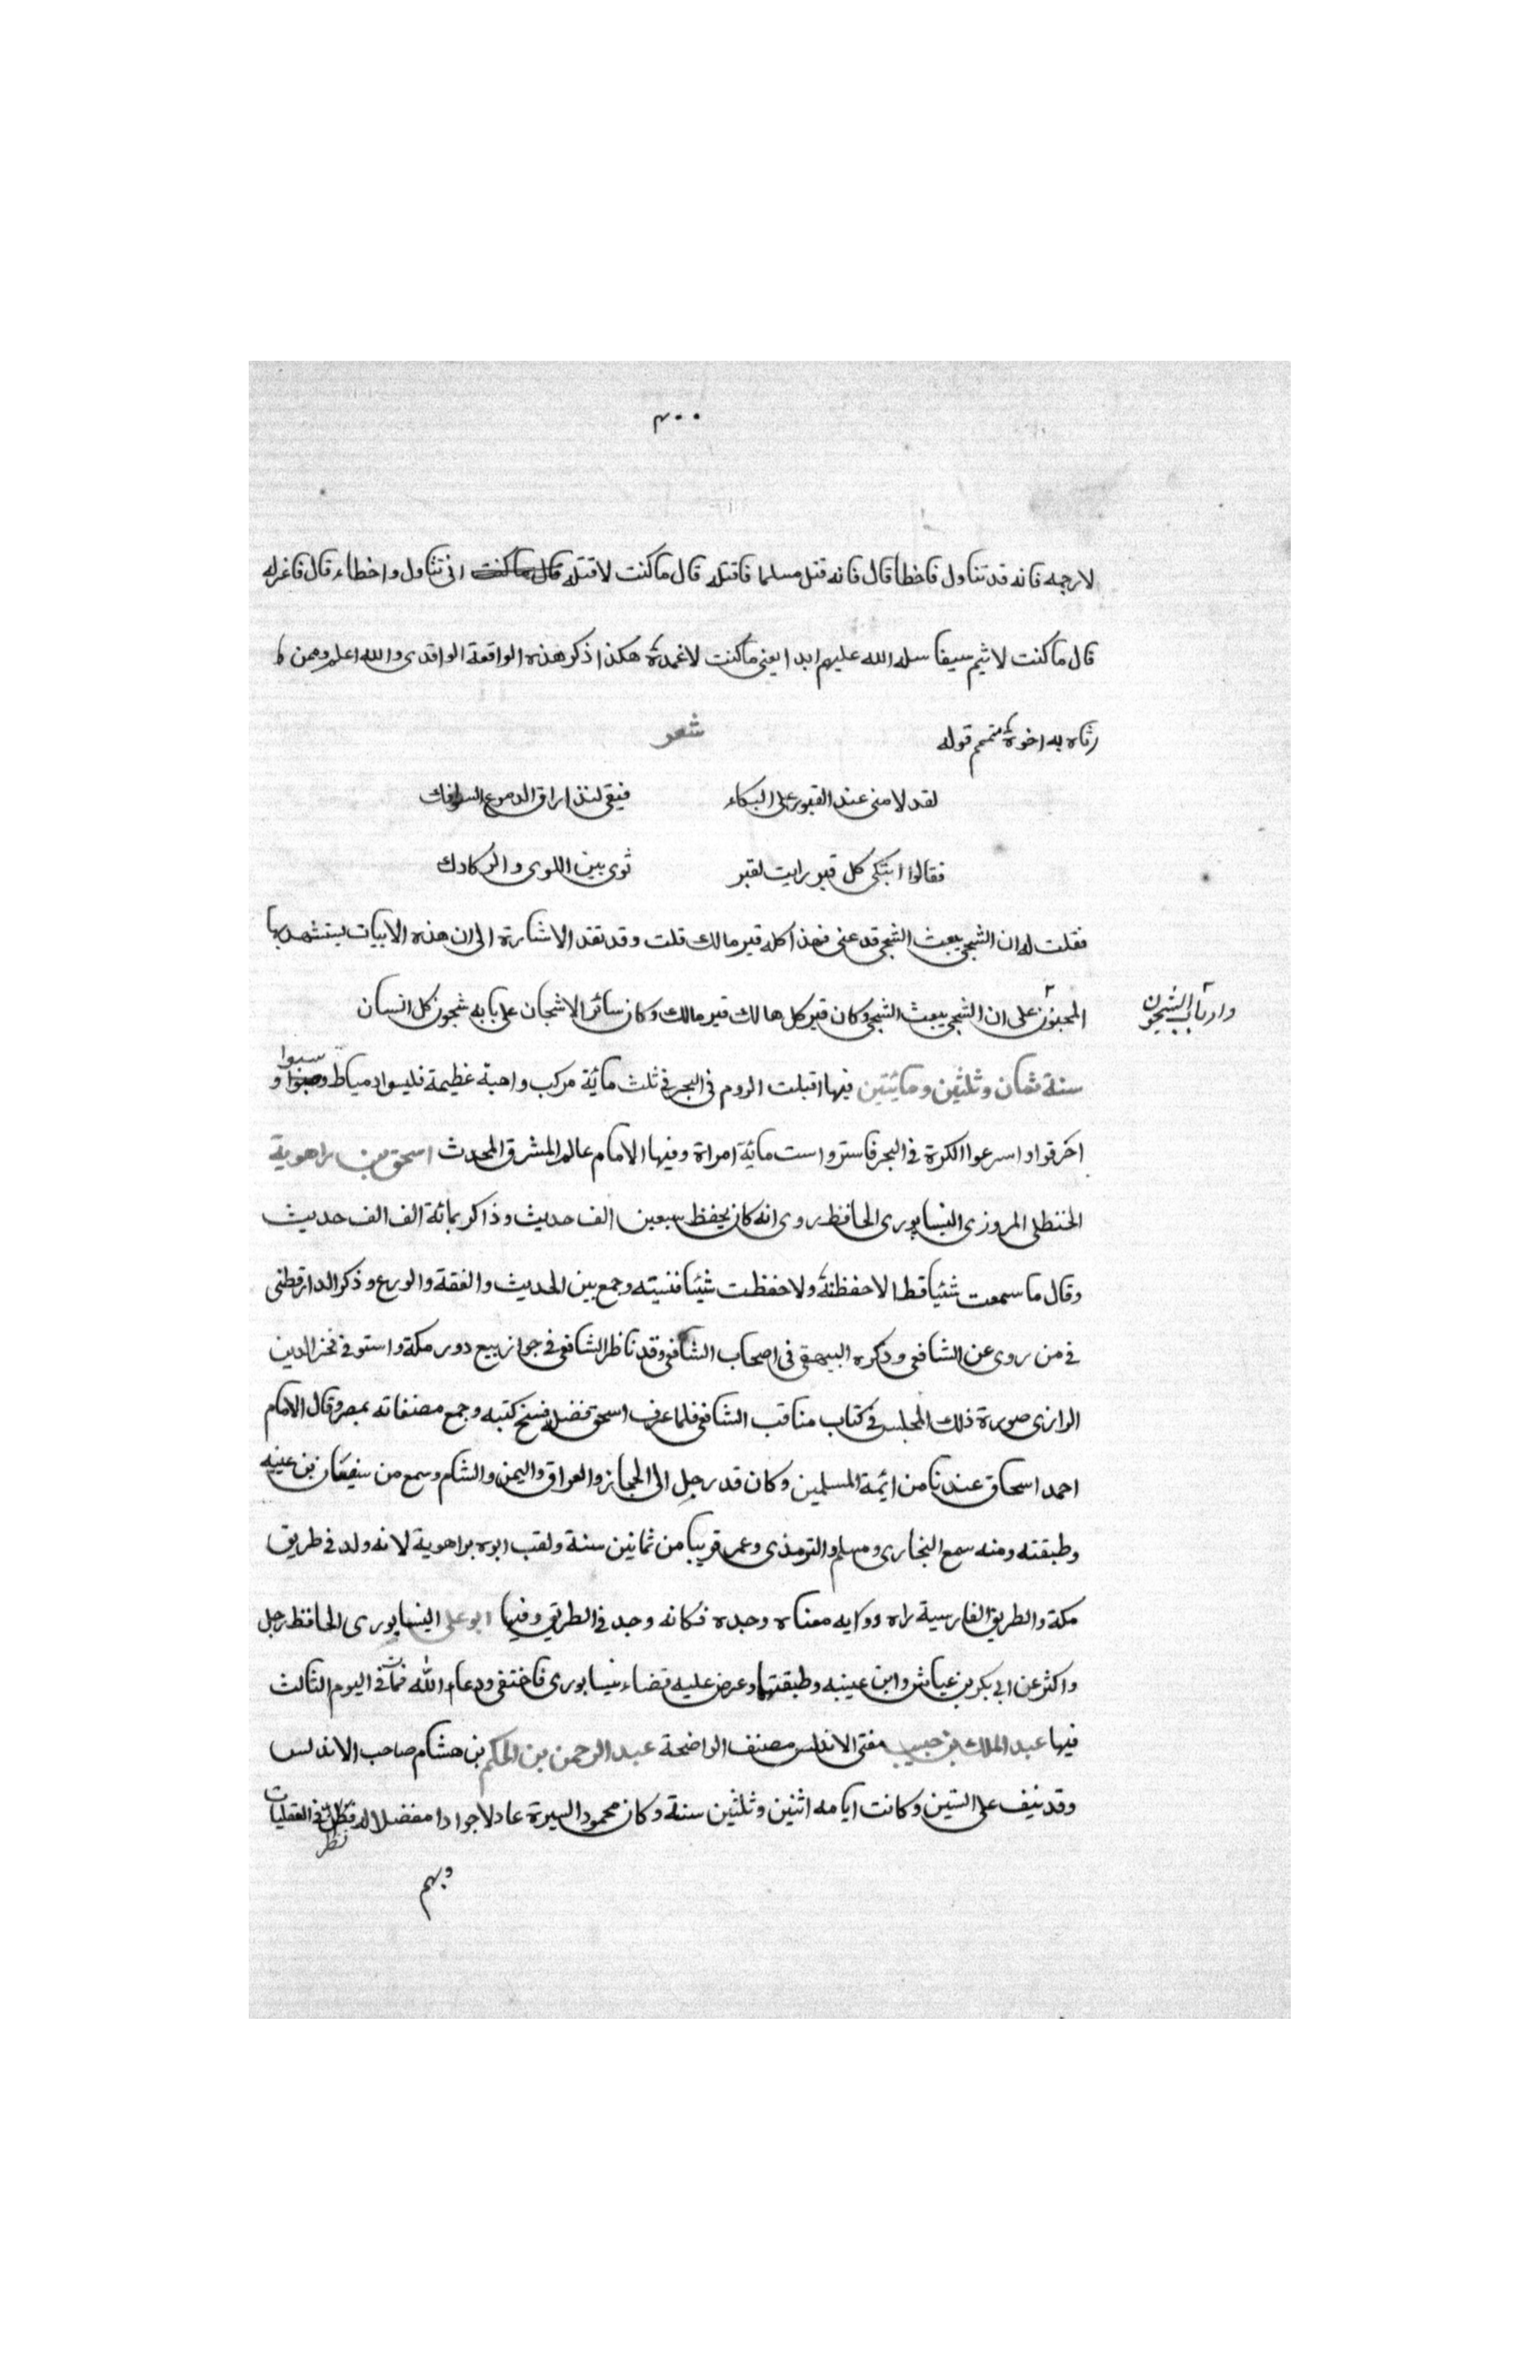 ٤٠٠
لارجمه فانه قد تناول فاخطا قال فانه قتل مسلما فاقتله قال ما كنت لاقتله قال ما كنت انى تناول واخطاء قال فاغرله
قال ما كنت لاشيم سيفا سله الله عليهم ابدا يعنى ما كنت لاغمده هكذا ذكر هذه الواقعة الواقدى والله اعلم وممن
رثاه به اخوه متمم قوله شعر
لقد لامنى عند القبور على البكاء فيقى لتذراق الدموع السوافك
فقالوا ابتكى كل قبر رايت لقبر ثوى بين اللوى والركادك
فقلت له ان الشجى يبعث الشجى قد عنى فهذا كله قبر مالك قلت وقد تقد الاشارة الى ان هذه الابيات يستشهد بها
المحبون على ان الشجى يبعث الشجى وكان قبر كل هالك قبر مالك وكان سائر الاشجان على بابه شجون كل انسان
وارباب الشجون
سنة ثمان وثلثين ومايتين فيها اقبلت الروم فى البحر فى ثلث مائة مركب واهبة عظيمة فليسوا دمياط وسبوا و
اخرقوا واسرعوا الكرة فى البحر فاستروا ست مائة امراة وفيها الامام عالم المشرق المحدث اسحق بن راهوية
الحنظلى المروزى النيسابورى الحافظ روى انه كان يحفظ سبعين الف حديث وذاكر بمائة الف الف حديث
وقال ما سمعت شئيا قط الا حفظته ولا حفظت شيئا فنسيته وجمع بين الحديث والفقة والورع وذكر الدارقطنى
فى من روى عن الشافعى وذكره البيهقى فى اصحاب الشافعى وقد ناظر الشافعى فى جواز بيع دور مكة واستوفى فخر الدين
الرازى صورة ذلك المجلس فى كتاب مناقب الشافعى فلما عرف اسحق فضله فسخ كتبه وجمع مصنفاته بمصر وقال الامام
احمد اسحاق عندنا من ائمة المسلمين وكان قد رحل الى الحجاز والعراق واليمن والشام وسمع من سفيان بن عينه
وطبقته ومنه سمع البخارى ومسلم والترمذى وعمر قريبا من ثمانين سنة ولقب ابوه براهوية لانه ولد فى طريق
مكة والطريق الفارسية راه وويه معناه وجده فكانه وجد فى الطريق وفيها ابو على النيسابورى الحافظ رجل
واكثر عن ابى بكر بن عياش وابن عينيه وطبقتهما وعرض عليه قضاء نيسابورى فاختفى ودعا الله فمات فى اليوم الثالث
فيها عبد الملك بن حبيب مفتى الاندلس مصنف الواضحة عبد الرحمن بن الحكم بن هشام صاحب الاندلس
وقد نيف على الستين وكانت ايامه اثنين وثلثين سنة وكان محمود السيرة عادلا جوادا مفضلا له نظر فى العقليات
وبهم